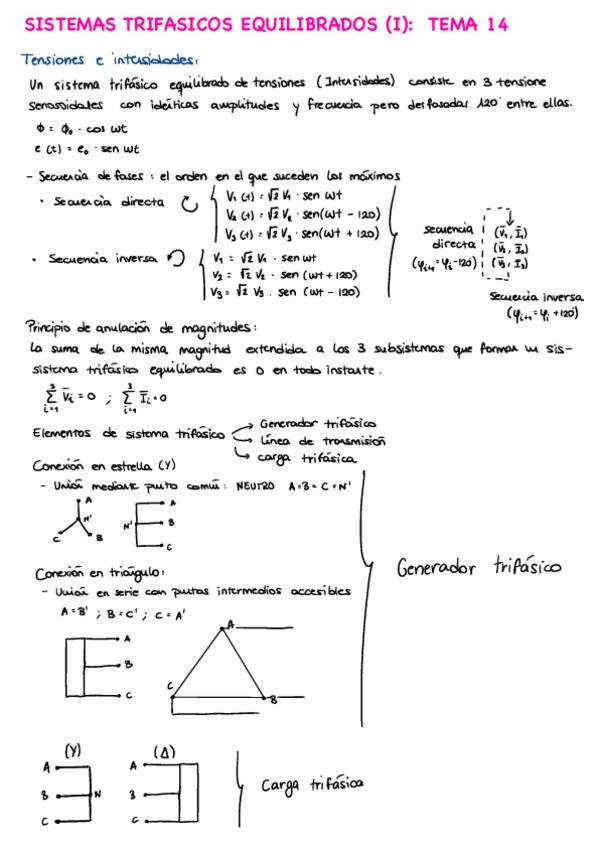 SISTEMAS TRIFASICOS EQUILIBRADOS (I): TEMA 14
Tensiones e intesidades:
Un sistema trifásico equilibrado de tensiones (Intesidades) consiste en 3 tensione
senosoidales con idéticas amplitudes y frecuencia pero desfasadas 120° entre ellas.
ϕ = ϕ₀ · cos wt
e (t) = e₀ · sen wt
- Secuencia de fases: el orden en el que suceden los máximos
• Secuencia directa
V₁(t) = √2 V₁ · sen wt
V₂(t) = √2 V₂ · sen(wt - 120)
V₃(t) = √2 V₃ · sen(wt + 120)
• Secuencia inversa
V₁ = √2 V₁ · sen wt
V₂ = √2 V₂ · sen (wt + 120)
V₃ = √2 V₃ . sen (wt - 120)
secuencia
directa
(φᵢ₊₁ = φᵢ - 120)
(V̄₁, Ī₁)
(V̄₂, Ī₂)
(V̄₃, Ī₃)
Secuecia inversa
(φᵢ₊₁ = φᵢ + 120)
Principio de anulación de magnitudes:
La suma de la misma magnitud extendida a los 3 subsistemas que forman un sis-
sistema trifásico equilibrado es 0 en todo instante.
3 Σ i=1 V̄ᵢ = 0 ; 3 Σ i=1 Īᵢ = 0
Elementos de sistema trifásico
Generador trifásico
línea de transmisión
carga trifásica
Conexión en estrella (Y)
- Unión mediante puto común: NEUTRO A=B=C=N'
A
N'
C
B
N'
A
B
C
Conexión en triángulo:
- Unión en serie con putos intermedios accesibles
A = B' ; B = C' ; C = A'
A
B
C
A
C
B
Generador trifásico
(Y)
A
B
C
N
(Δ)
A
B
C
Carga trifásica